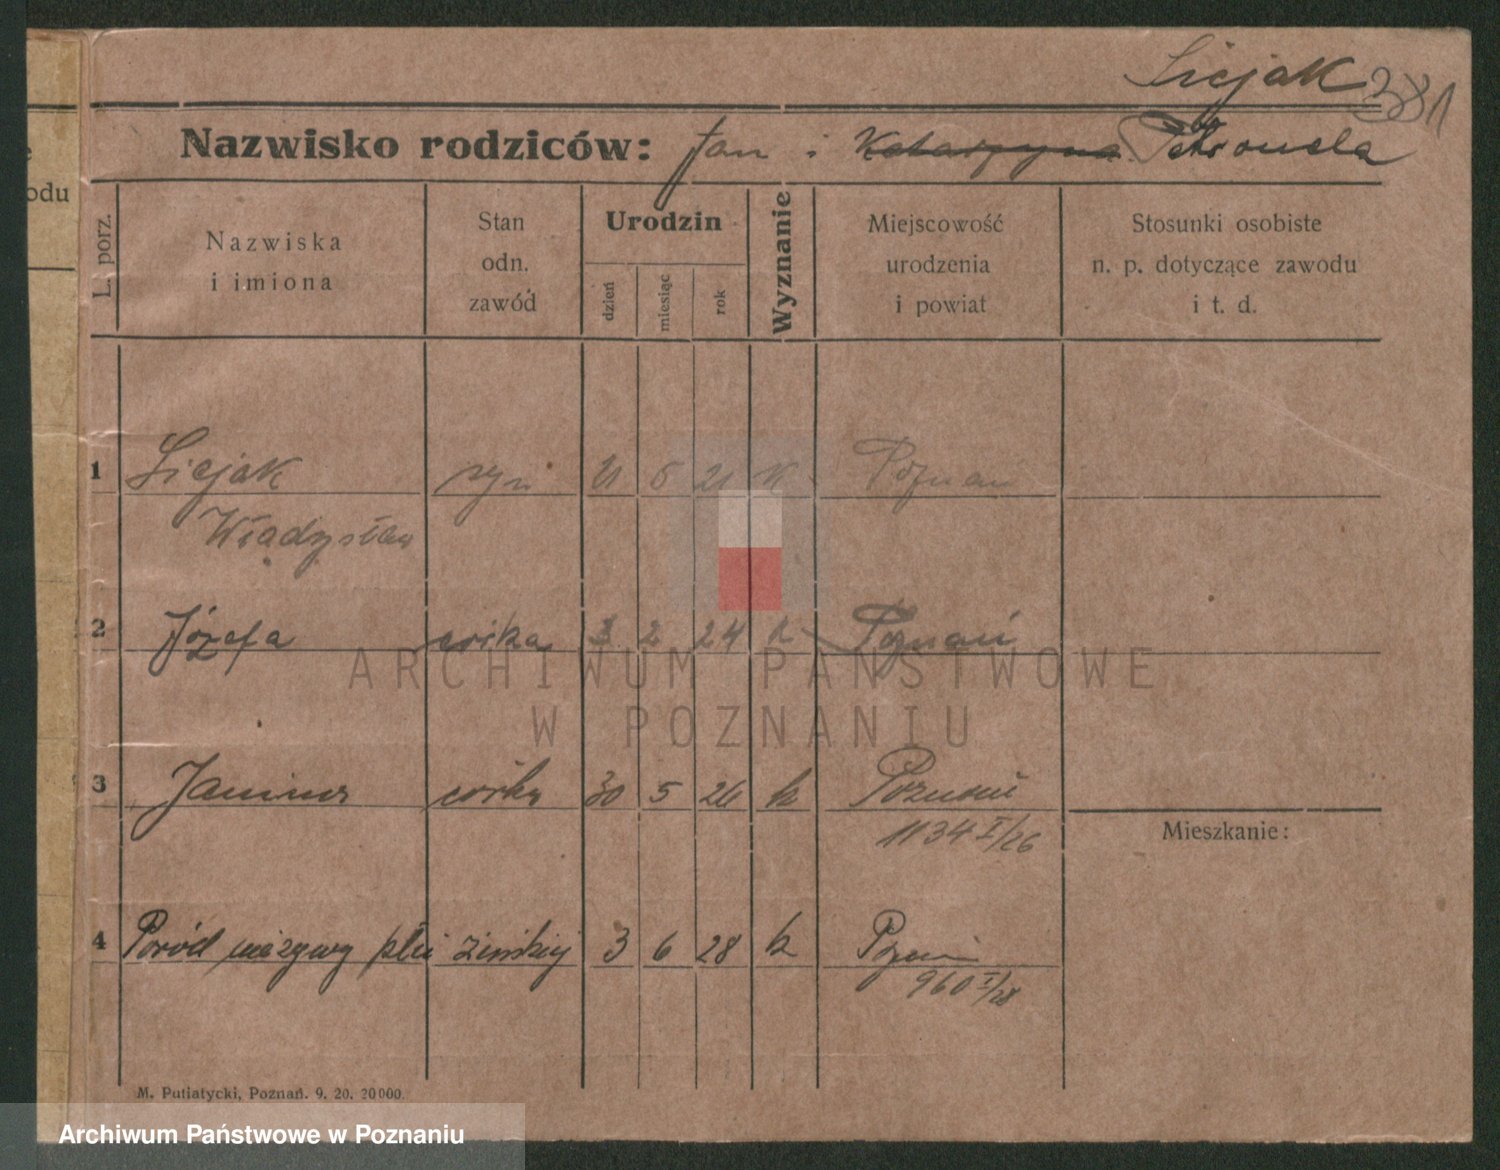 Licjak 381
Nazwisko rodziców: Jan i Katarzyna Petronela
odu
L. porz.
Nazwiska
i imiona
Stan
odn.
zawód
Urodzin
dzień
miesiąc
rok
Wyznanie
Miejscowość
urodzenia
i powiat
Stosunki osobiste
n. p. dotyczące zawodu
i t. d.
1 Licjak syn 21 6 21 k Poznań
Władysław
2 Józefa córka 2 24 k Poznań
ARCHIWUM PAŃSTWOWE
W POZNANIU
3 Janina córka 30 5 26 k Poznań
1134 I/26
Mieszkanie:
4 Poród nieżywy płci żeńskiej 3 6 28 k Poznań
960 I/28
M. Putiatycki, Poznań. 9. 20. 20000.
Archiwum Państwowe w Poznaniu